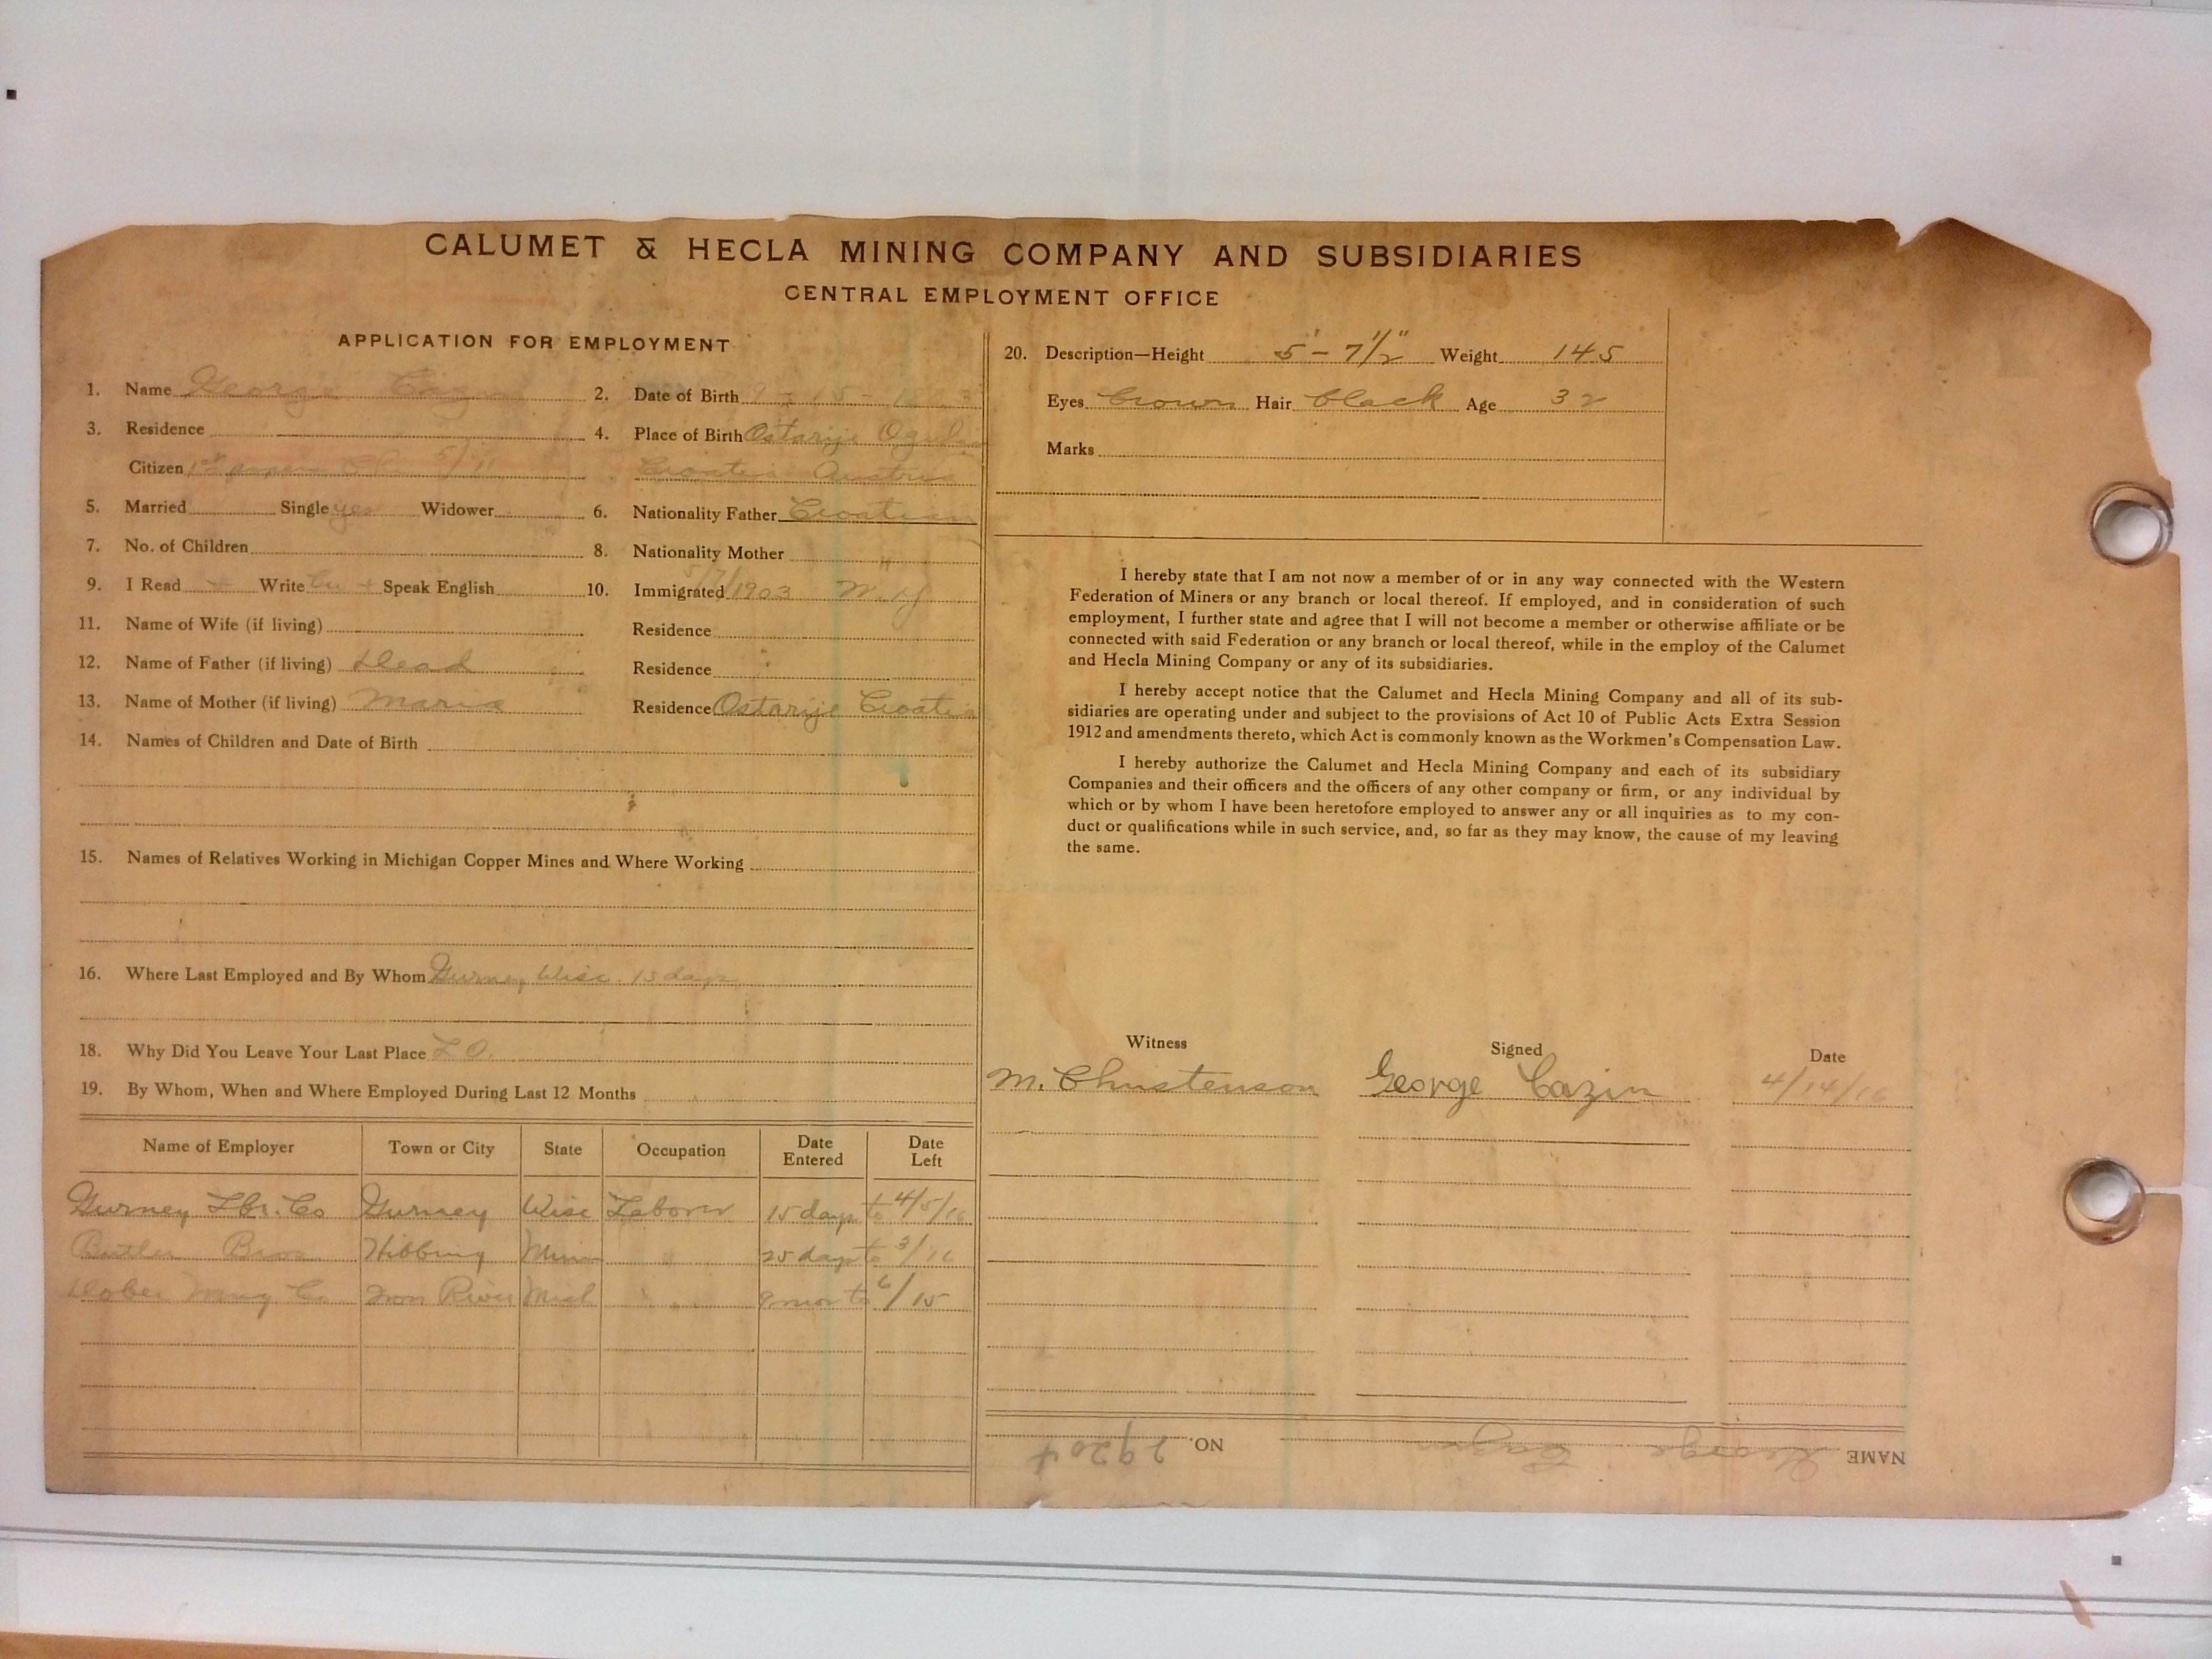 CALUMET & HECLA MINING COMPANY AND SUBSIDIARIES
CENTRAL EMPLOYMENT OFFICE
APPLICATION FOR EMPLOYMENT
1. Name George 2. Date of Birth 9 - 15 -
3. Residence 4. Place of Birth Ostarije Ogulin
Citizen 1st papers 5/11 Croatia Austria
5. Married Single yes Widower 6. Nationality Father Croatian
7. No. of Children 8. Nationality Mother "
9. I Read Write Speak English 10. Immigrated 1903
11. Name of Wife (if living) Residence
12. Name of Father (if living) Dead Residence
13. Name of Mother (if living) Maria Residence Ostarije Croatia
14. Names of Children and Date of Birth
15. Names of Relatives Working in Michigan Copper Mines and Where Working
16. Where Last Employed and By Whom Gurney Wisc. 15 days
18. Why Did You Leave Your Last Place L O.
19. By Whom, When and Where Employed During Last 12 Months
Name of Employer Town or City State Occupation Date Entered Date Left
Gurney Lbr. Co Gurney Wisc Laborer 15 days to 4/5/16
Butler Bros Hibbing Minn " 25 days to 3/16
Dober Mng Co Iron River Mich " 9 mos to 6/15
20. Description—Height 5' - 7 1/2" Weight 145
Eyes brown Hair black Age 32
Marks
I hereby state that I am not now a member of or in any way connected with the Western
Federation of Miners or any branch or local thereof. If employed, and in consideration of such
employment, I further state and agree that I will not become a member or otherwise affiliate or be
connected with said Federation or any branch or local thereof, while in the employ of the Calumet
and Hecla Mining Company or any of its subsidiaries.
I hereby accept notice that the Calumet and Hecla Mining Company and all of its sub-
sidiaries are operating under and subject to the provisions of Act 10 of Public Acts Extra Session
1912 and amendments thereto, which Act is commonly known as the Workmen's Compensation Law.
I hereby authorize the Calumet and Hecla Mining Company and each of its subsidiary
Companies and their officers and the officers of any other company or firm, or any individual by
which or by whom I have been heretofore employed to answer any or all inquiries as to my con-
duct or qualifications while in such service, and, so far as they may know, the cause of my leaving
the same.
Witness Signed Date
M. Christenson George Cazin 4/14/16
NAME George Cazin NO. 29204